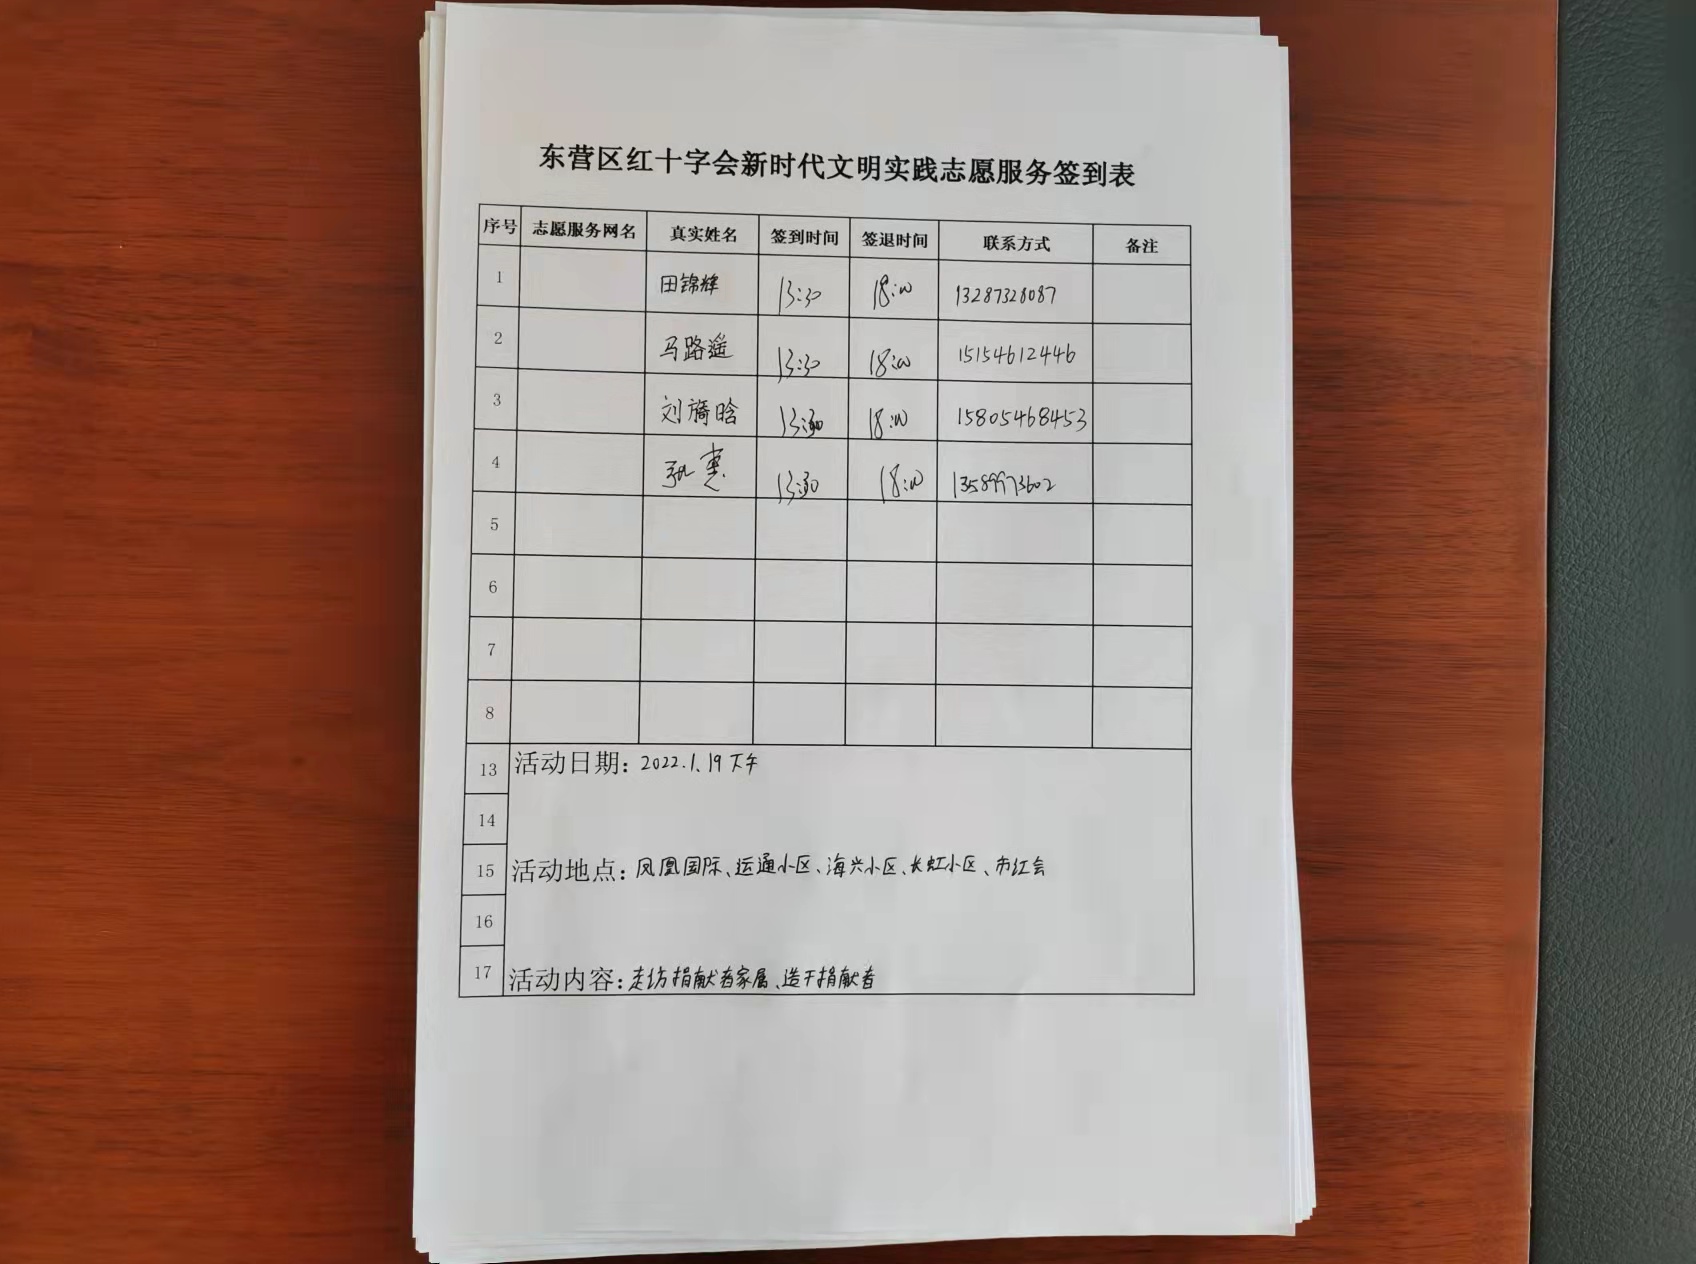 东营区红十字会新时代文明实践志愿服务签到表
序号 志愿服务网名 真实姓名 签到时间 签退时间 联系方式 备注
1 田锦辉 13:30 18:00 13287328087
2 马路遥 13:30 18:00 15154612446
3 刘旖晗 13:30 18:00 15805468453
4 惠 13:30 18:00 13589973602
5
6
7
8
13 活动日期: 2022.1.19下午
14
15 活动地点: 凤凰国际、运通小区、海兴小区、长虹小区、市红会
16
17 活动内容: 走访捐献者家属、造干捐献者